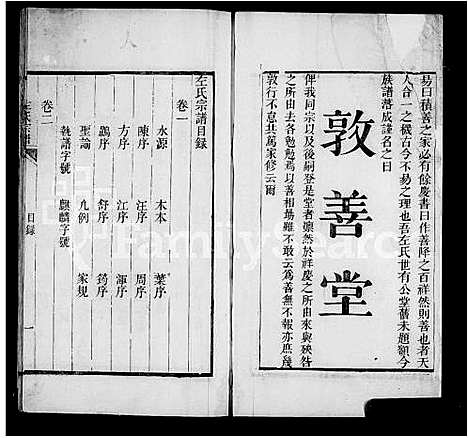 易曰積善之家必有餘慶書曰作善降之百祥然則善也者天
人合一之機古今不易之理也吾左氏世有公堂舊未題額今
族譜落成謹名之曰
敦善堂
俾我同宗以及後嗣登是堂者懍然於祥慶之所由來與殃咎
之所由去各勉勉焉以善相勗雖不敢云為善無不報亦庶幾
敦行不怠共篤家修云爾
左氏宗譜目録
卷一
水源 木本 葉序
陳序 汪序 周序
方序 江序 渾序
鷃序 舒序 筠序
聖諭 凡例 家規
卷二
執譜字號 麒麟字號
目録
一
FamilySearch